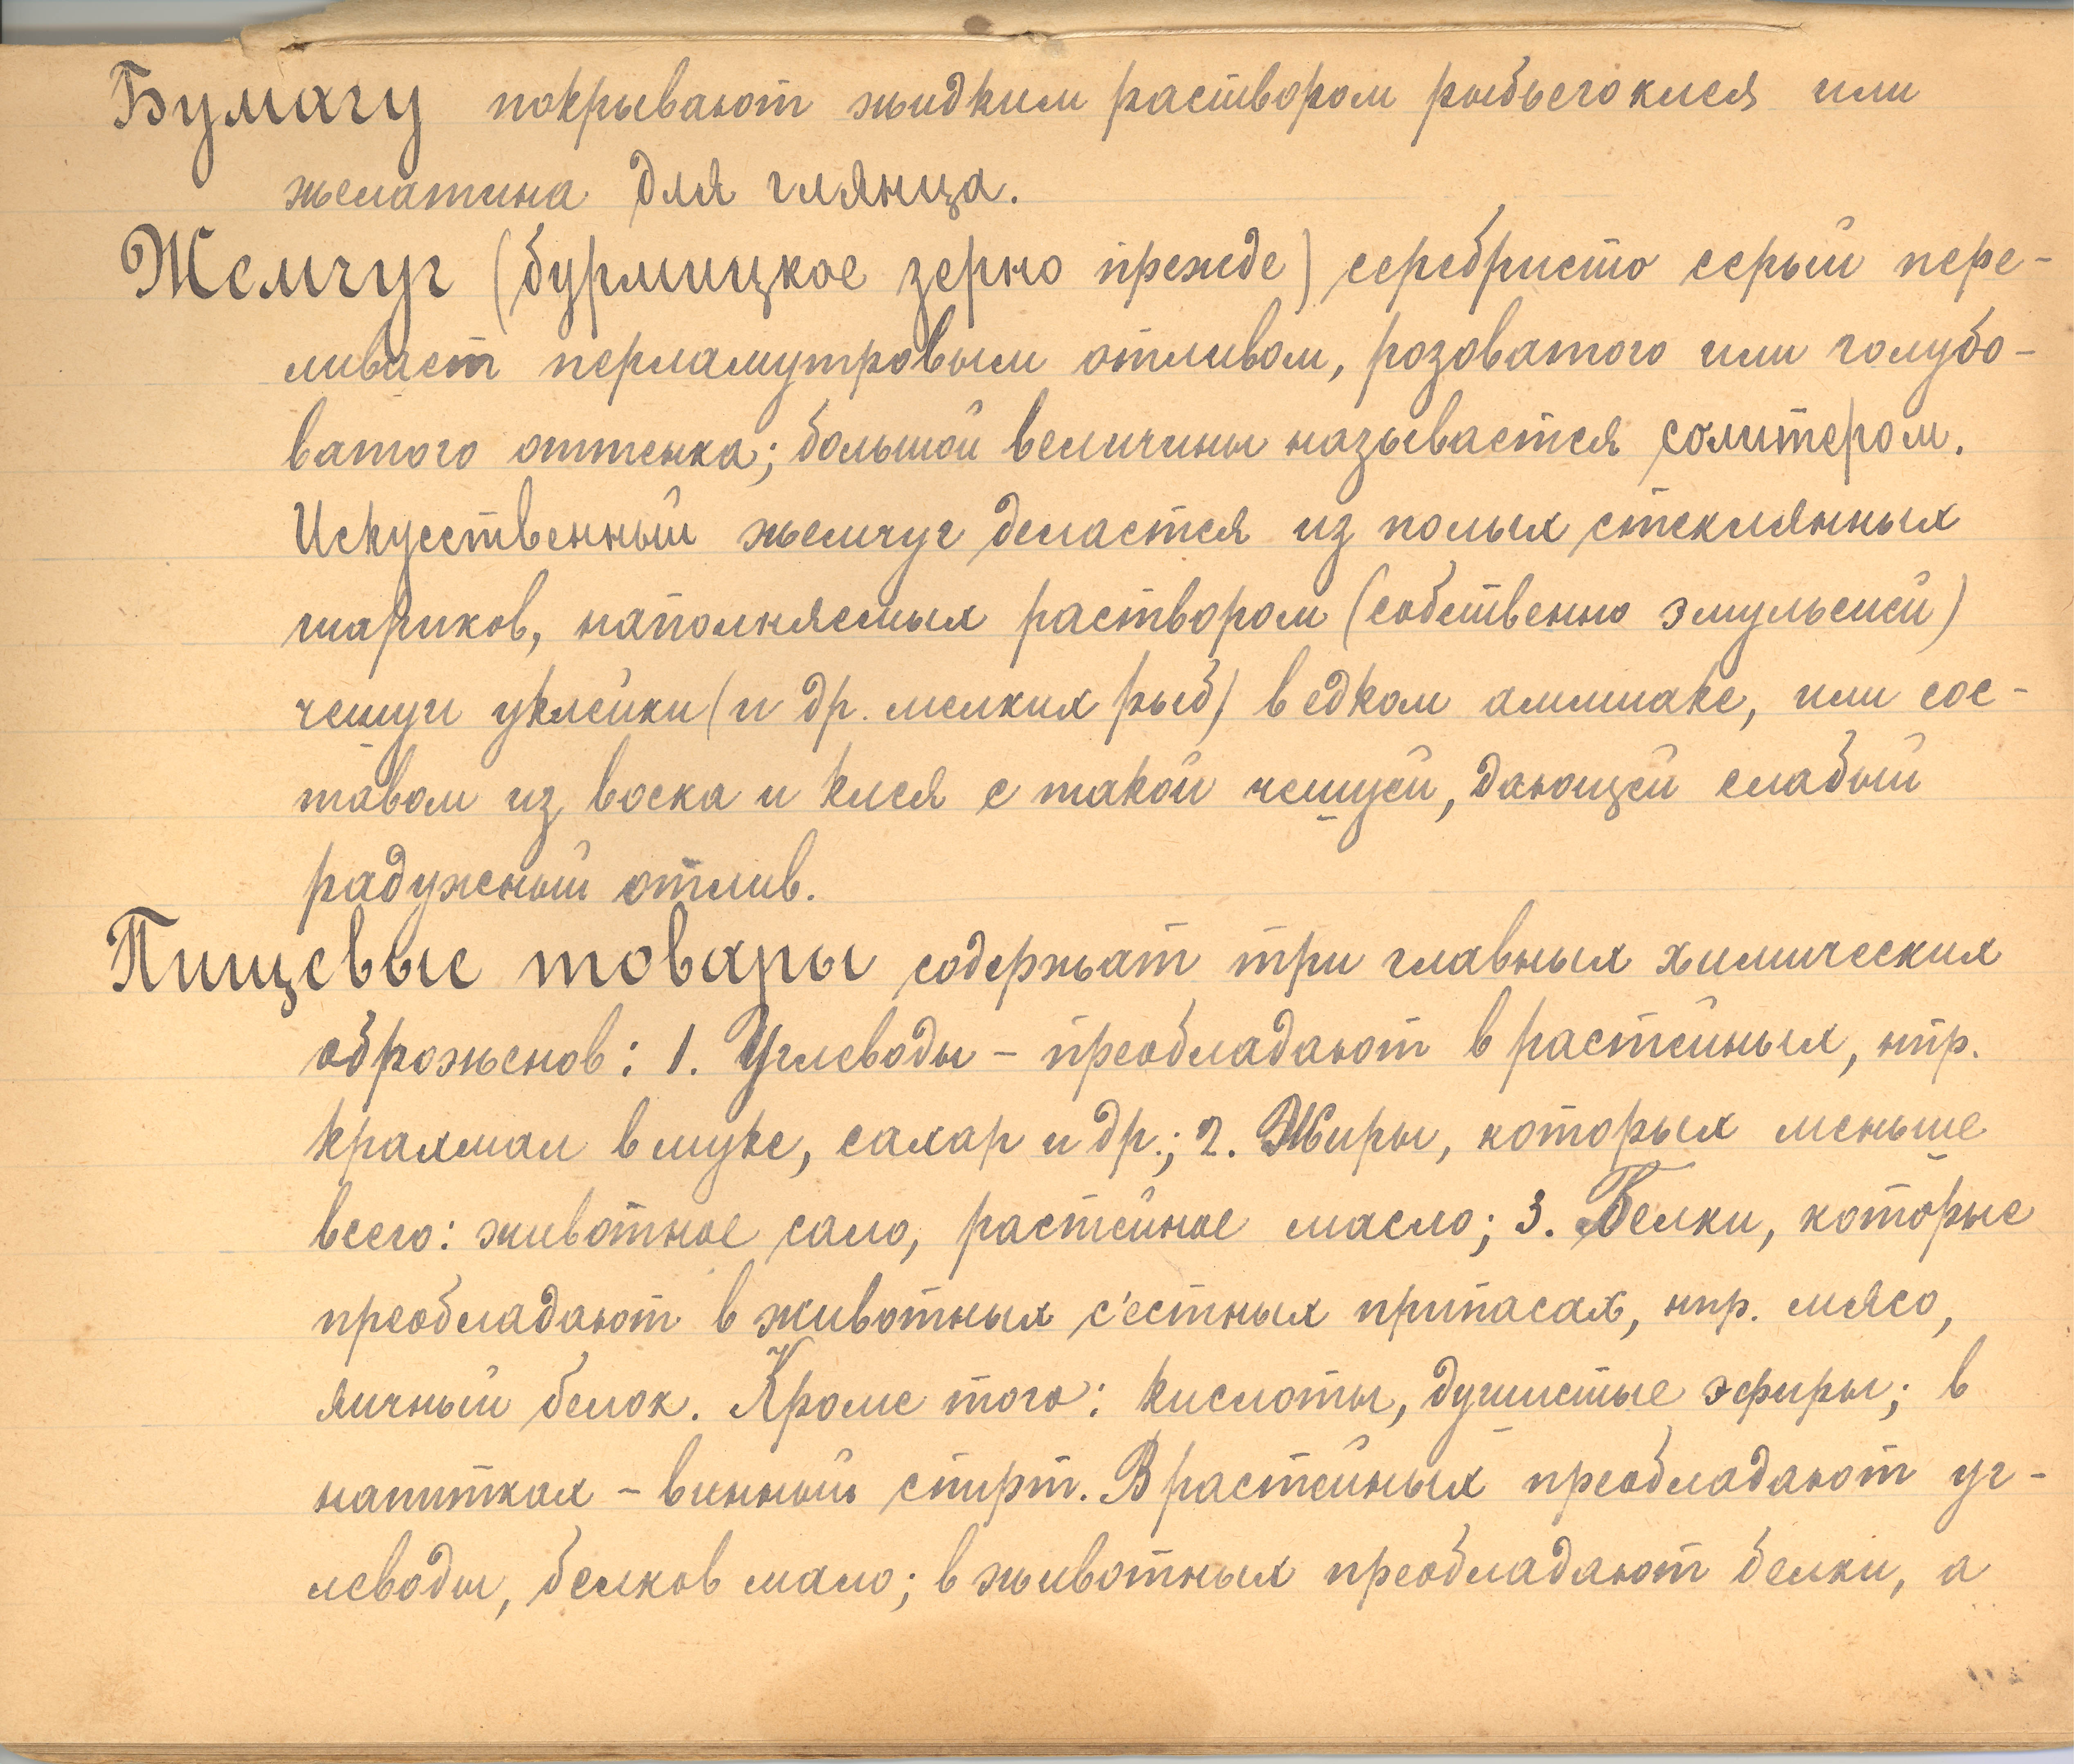 Бумагу покрывают жидким раствором рыбьего клея или
желатина для глянца.
Жемчуг (бурмицкое зерно прежде) серебристо серый пере-
ливает перламутровым отливом, розоватого или голубо-
ватого оттенка; большой величины называется солитером.
Искусственный жемчуг делается из полых стеклянных
шариков, наполняемых раствором (собственно эмульсией)
чешуи уклейки (и др. мелких рыб) в едком аммиаке, или сос-
тавом из воска и клея с такой чешуей, дающей слабый
радужный отлив.
Пищевые товары содержат три главных химических
оброженов: 1. Углеводы - преобладают в растейных, нпр.
крахмал в муке, сахар и др.; 2. Жиры, которых меньше
всего: животное сало, растейное масло; 3. Белки, которые
преобладают в животных с'естных припасах, нпр. мясо,
яичный белок. Кроме того: кислоты, душистые эфиры; в
напитках - винный спирт. В растейных преобладают уг-
леводы, белков мало; в животных преобладают белки, а